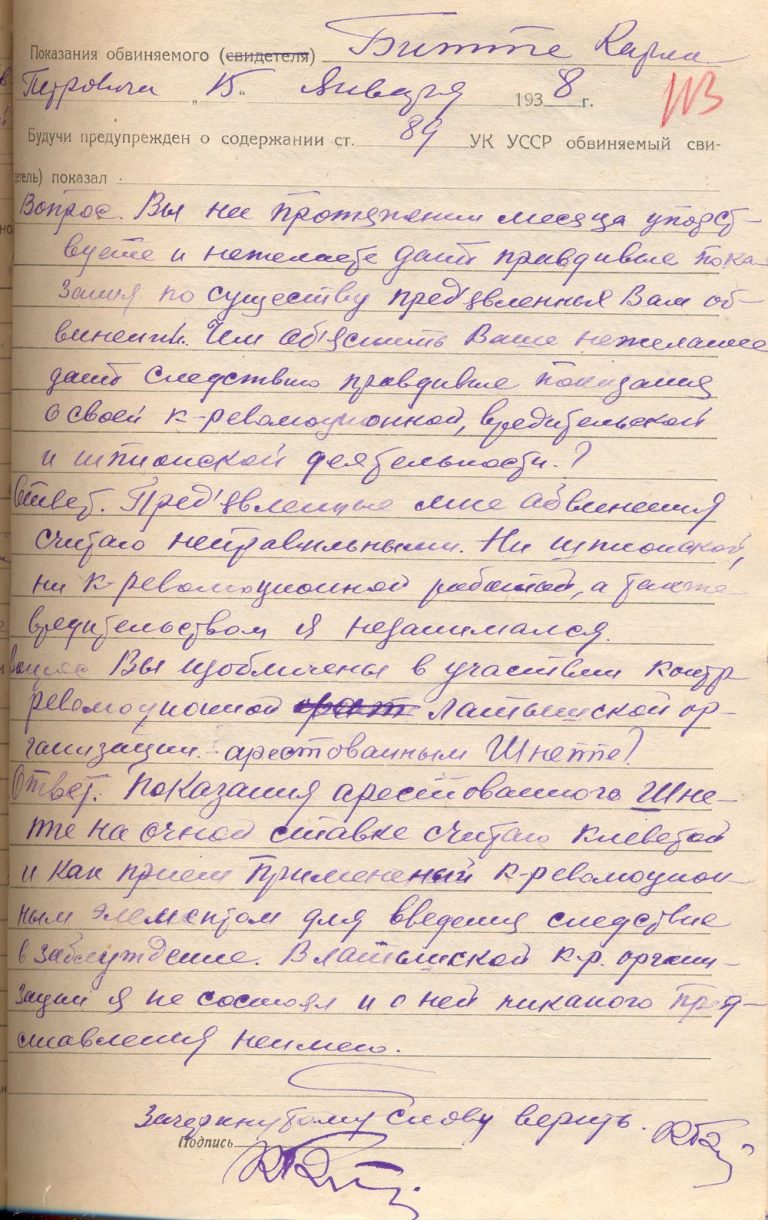 Показания обвиняемого (свидетеля) Битте Карла
Петровича „15" Января 1938 г.
113
Будучи предупрежден о содержании ст. 89 УК УССР обвиняемый сви-
детель) показал
Вопрос. Вы на протяжении месяца упорст-
вуете и нежелаете дать правдивые пока-
зания по существу пред'явленных Вам об-
винений. Чем об'яснить Ваше нежелание
дать следствию правдивые показания
о своей к-революционной, вредительской
и шпионской деятельности.?
Ответ. Пред'явленные мне обвинения
считаю неправильными. Ни шпионской,
ни к-революционной работой, а также
вредительством я незанимался.
Вопрос Вы изобличены в участии контр
революционной Латышской ор-
ганизации арестованным Шнетте?
Ответ. Показания арестованного Шне-
тте на очной ставке считаю клеветой
и как прием применений к-революцион-
ным элементом для введения следствие
в заблуждение. В латышской к.р. органи-
зации я не состоял и о ней никакого пред-
ставления неимею.
Зачеркнутому слову верить.
Подпись